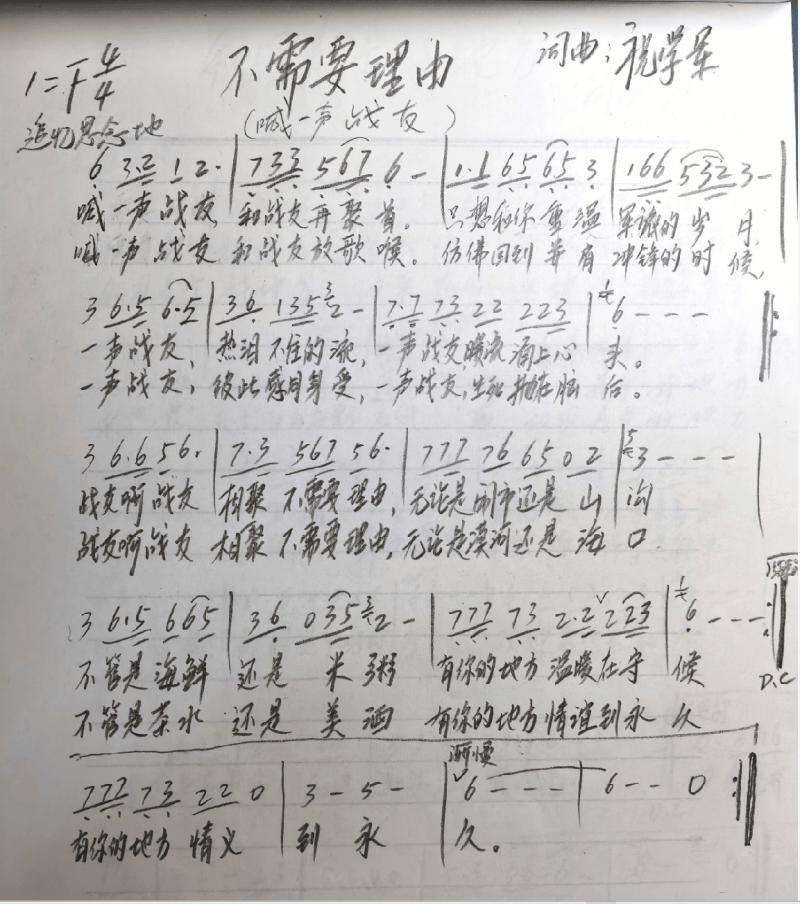 1=F 4/4 不需要理由 词曲：祝学军
追忆思念地 (喊一声战友)
6 3·2 1 2· | 733 567 6 - | 1·1 65 65 3 | 166 532 3 -
喊一声战友 和战友再聚首。只想和你重温 军诚的岁月,
喊一声战友 和战友放歌喉。仿佛回到并肩冲锋的时候,
3 6·5 6·5 | 36 135 3 2 - | 7·7 73 22 223 | 6 - - - :‖
一声战友, 热泪不住的流, 一声战友,暖流涌上心头。
一声战友, 彼此感同身受, 一声战友,生死抛在脑后。
3 6·6 56· | 7·3 567 56· | 777 76 65 0 2 | 5 3 - - - |
战友啊战友 相聚不需要理由, 无论是闹市还是山沟
战友啊战友 相聚不需要理由, 无论是漠河还是海口
3 6·5 665 | 36 035 3 2 - | 777 73 2·2 ˅ 223 | 6 - - - :‖
不管是海鲜 还是米粥 有你的地方温暖在守候
D.C
不管是茶水 还是美酒 有你的地方情谊到永久
渐慢
777 73 22 0 | 3 - 5 - | 6 - - - | 6 - - 0 :‖
有你的地方情义 到永 久。